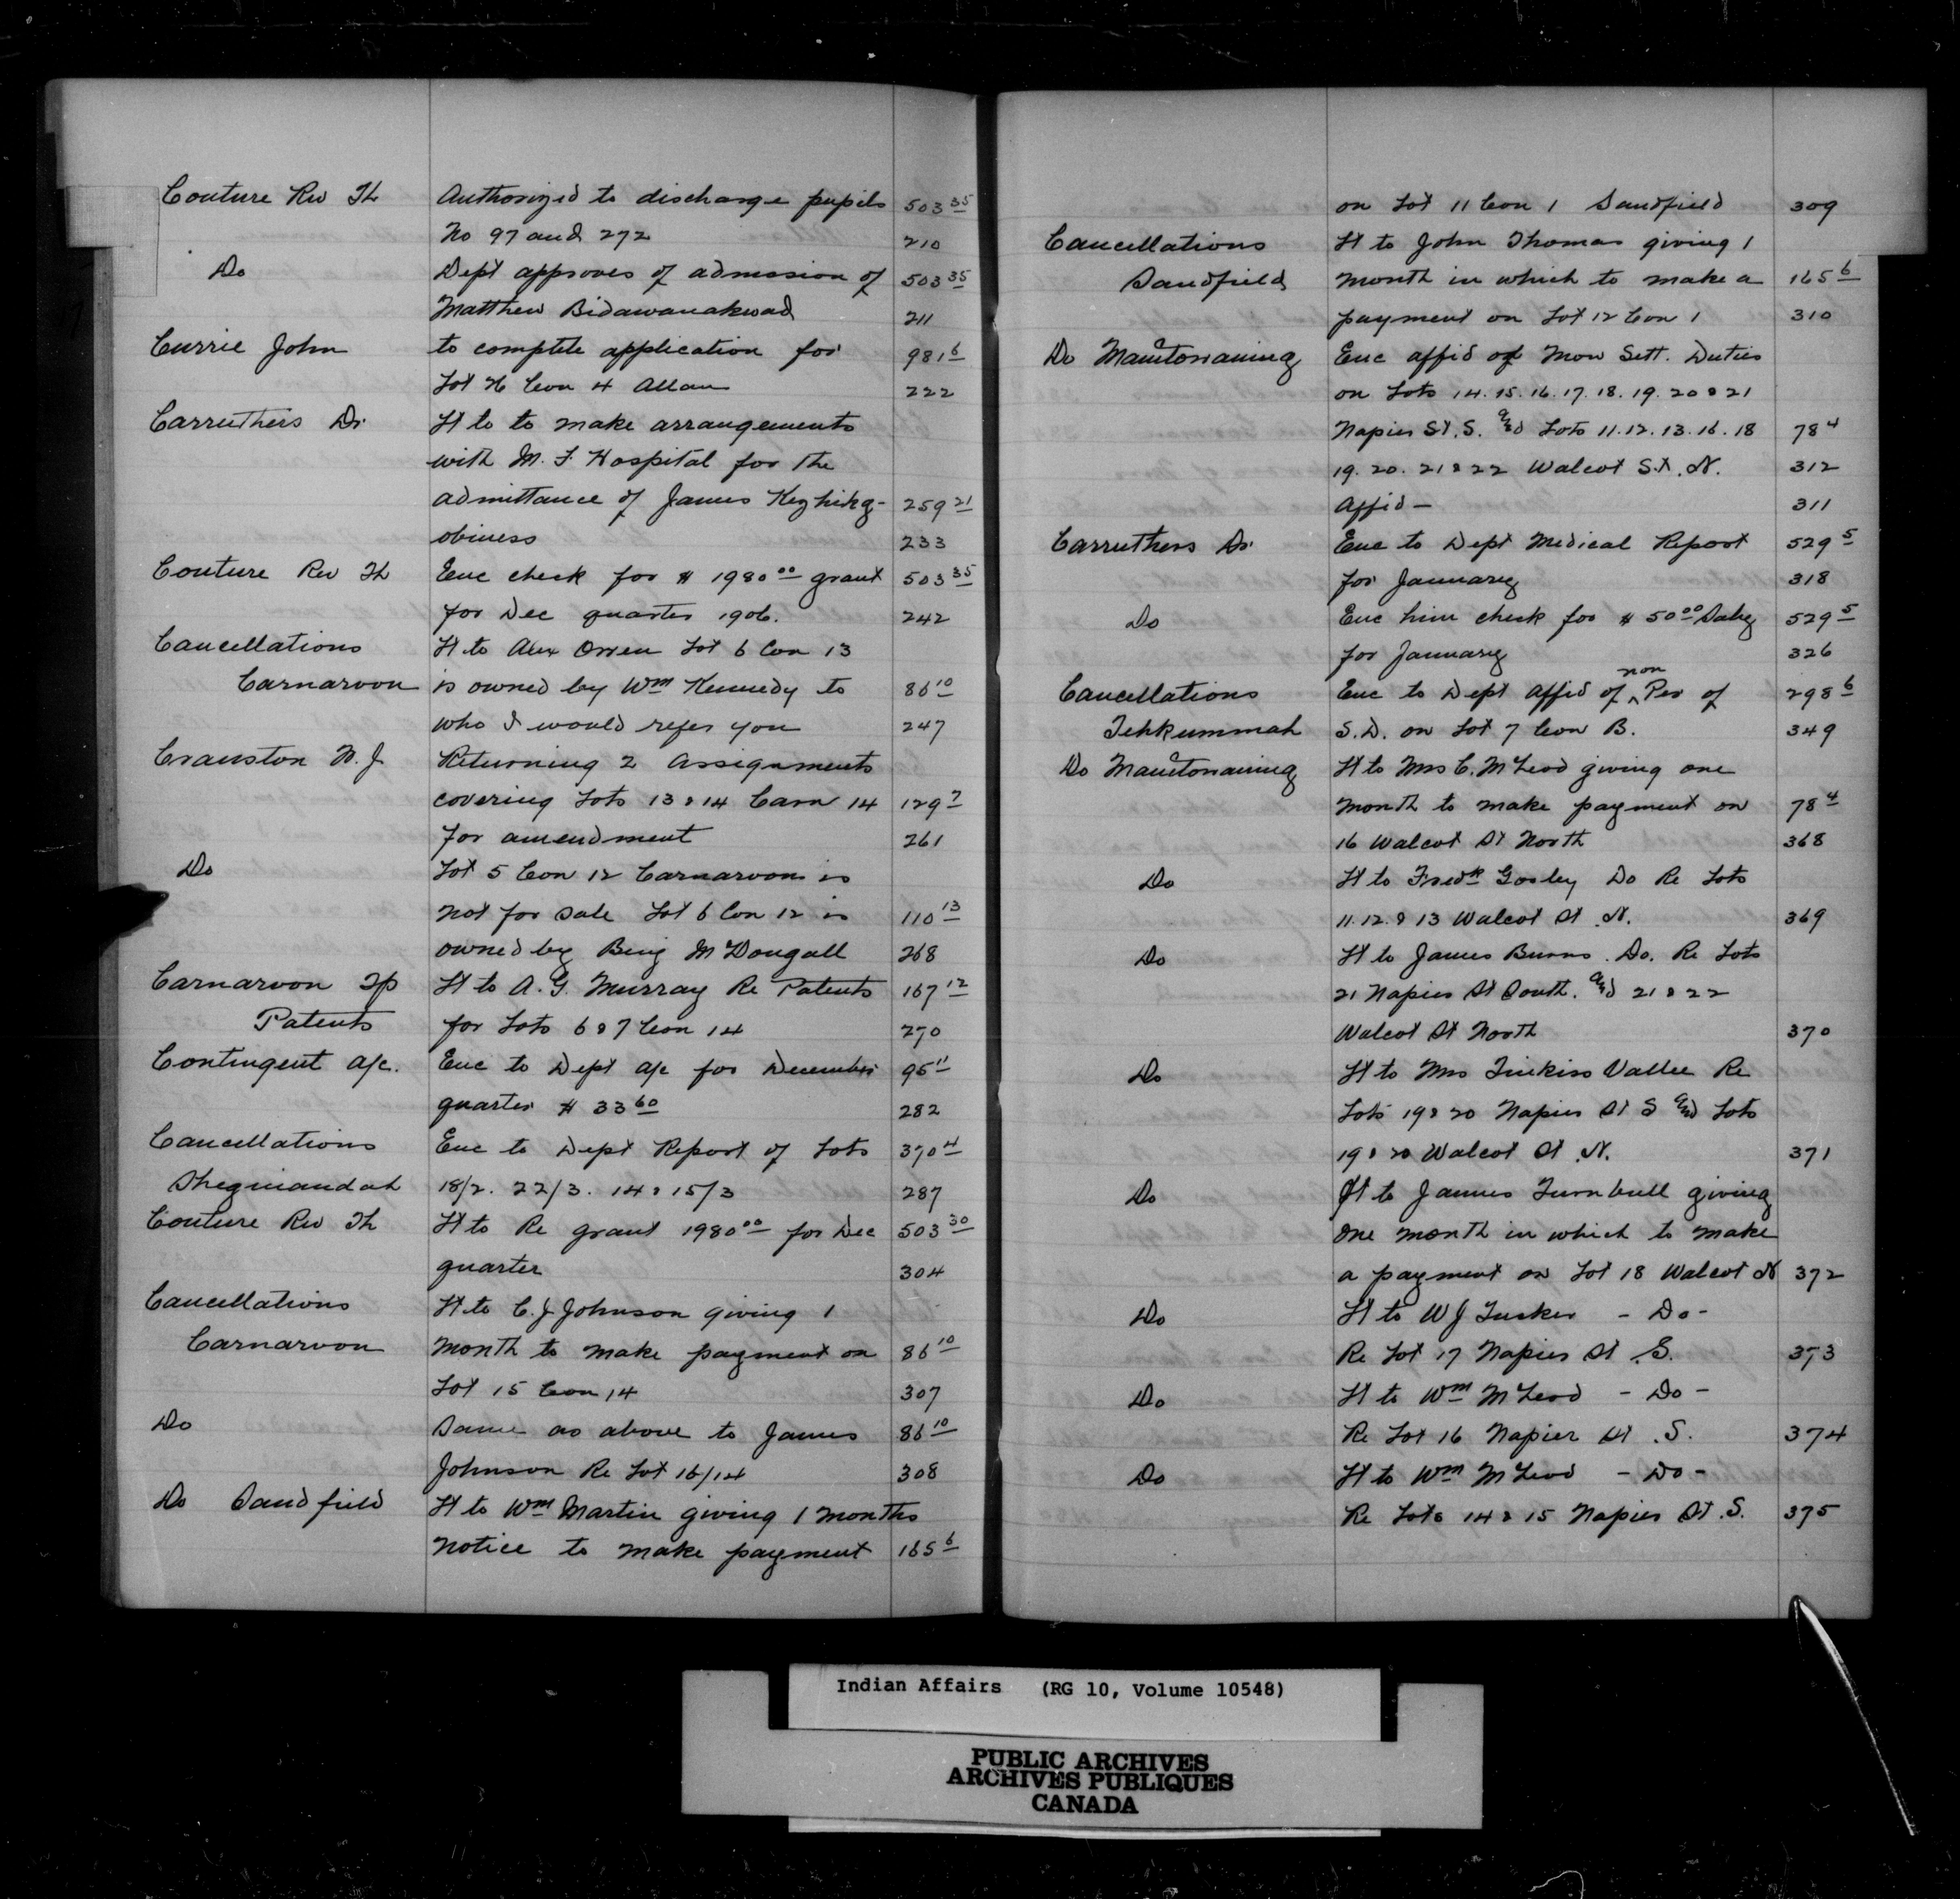 Couture Rev Th Authorized to discharge pupils 503 35
No 97 and 272 210
Do Dept approves of admission of 503 35
Matthew Bidawanakwad 211
Currie John to complete application for 981 6
Lot 26 Con 4 Allan 222
Carruthers Dr. Lt to to make arrangements
with M. F. Hospital for the
admittance of James Kezhikg- 259 21
obiness 233
Couture Rev Th Enc check for $ 1980 00 grant 503 35
for Dec quarter 1906. 242
Cancellations Lt to Alex Orren Lot 6 Con 13
Carnarvon is owned by Wm Kennedy to 86 10
who I would refer you 247
Cranston N. J. Returning 2 Assignments
covering Lots 13 & 14 Carn 14 129 7
for amendment 261
Do Lot 5 Con 12 Carnarvon is
not for sale Lot 6 Con 12 is 110 13
owned by Benj McDougall 268
Carnarvon Tp Lt to A. G. Murray Re Patents 167 12
Patents for Lots 6 & 7 Con 14 270
Contingent a/c. Enc to Dept a/c for December 95 11
quarter $ 33 60 282
Cancellations Enc to Dept Report of Lots 370 4
Sheguiandah 18/2. 22/3. 14 & 15/3 287
Couture Rev Th Lt to Re grant 1980 00 for Dec 503 30
quarter 304
Cancellations Lt to C. J Johnson giving 1
Carnarvon month to make payment on 86 10
Lot 15 Con 14 307
Do Same as above to James 86 10
Johnson Re Lot 16/14 308
Do Sandfield Lt to Wm Martin giving 1 months
notice to make payment 165 6
on Lot 11 Con 1 Sandfield 309
Cancellations Lt to John Thomas giving 1
Sandfield month in which to make a 165 6
payment on Lot 12 Con 1 310
Do Manitowaning Enc affid of Mow Sett. Duties
on Lots 14. 15. 16. 17. 18. 19. 20 & 21
Napier St. S. and Lots 11. 12. 13. 16. 18 78 4
19. 20. 21 & 22 Walcot St. N. 312
Affid — 311
Carruthers Dr. Enc to Dept Medical Report 529 5
for January 318
Do Enc him check for $ 50 00 Salry 529 5
for January 326
Cancellations Enc to Dept affid of non Per of 298 6
Tehkummah S. D. on Lot 7 Con B. 349
Do Manitowaning Lt to Mrs C. McLeod giving one
month to make payment on 78 4
16 Walcot St North 368
Do Lt to Fredk Gosley Do Re Lots
11. 12. & 13 Walcot St. N. 369
Do Lt to James Burns. Do. Re Lots
21 Napier St South. and 21 & 22
Walcot St North 370
Do Lt to Mrs Vallee Re
Lots 19 & 20 Napier St S and Lots
19 & 20 Walcot St. N. 371
Do Lt to James Turnbull giving
one month in which to make
a payment on Lot 18 Walcot N 372
Do Lt to W J Tucker - Do -
Re Lot 17 Napier St. S. 373
Do Lt to Wm McLeod - Do -
Re Lot 16 Napier St. S. 374
Do Lt to Wm McLeod - Do -
Re Lots 14 & 15 Napier St. S. 375
Indian Affairs (RG 10, Volume 10548)
PUBLIC ARCHIVES
ARCHIVES PUBLIQUES
CANADA